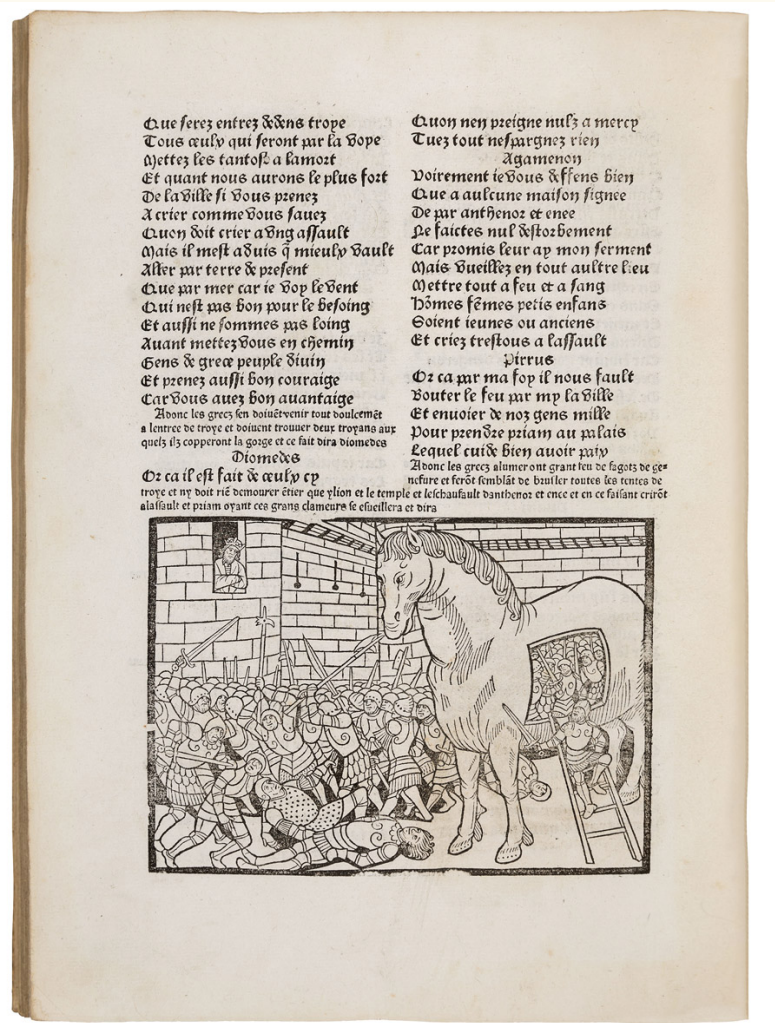 Que serez entrez dedens troye
Tous ceulx qui seront par la voye
Mettez les tantost a la mort
Et quant nous aurons le plus fort
De la ville si vous prenez
A crier comme vous sauez
Quon doit crier a vng assault
Mais il mest aduis q̄ mieulx vault
Aller par terre de present
Que par mer car ie voy le vent
Qui nest pas bon pour le besoing
Et aussi ne sommes pas loing
Auant mettez vous en chemin
Gens de grece peuple diuin
Et prenez aussi bon couraige
Car vous auez bon auantaige
Adonc les grecz sen doiuēt venir tout doulcemēt
a lentree de troye et doiuent trouuer deux troyans aux
quelz ilz copperont la gorge et ce fait dira diomedes
Diomedes
Or ca il est fait de ceulx cy
Quon nen preigne nulz a mercy
Tuez tout nespargnez rien
Agamenon
Voirement ie vous deffens bien
Que a aulcune maison signee
De par anthenor et enee
Ne faictes nul destorbement
Car promis leur ay mon serment
Mais vueillez en tout aultre lieu
Mettre tout a feu et a sang
Hōmes fēmes petis enfans
Soient ieunes ou anciens
Et criez trestous a lassault
Pirrus
Or ca par ma foy il nous fault
Bouter le feu par my la ville
Et enuoier de noz gens mille
Pour prendre priam au palais
Lequel cuide bien auoir paix
Adonc les grecz alumeront grant feu de fagotz de ge-
nefure et ferōt semblāt de brusler toutes les tentes de
troye et ny doit riē demourer ētier que ylion et le temple et leschaufault danthenor et enee et en ce faisant crirōt
alassault et priam oyant ces grans clameurs se esueillera et dira